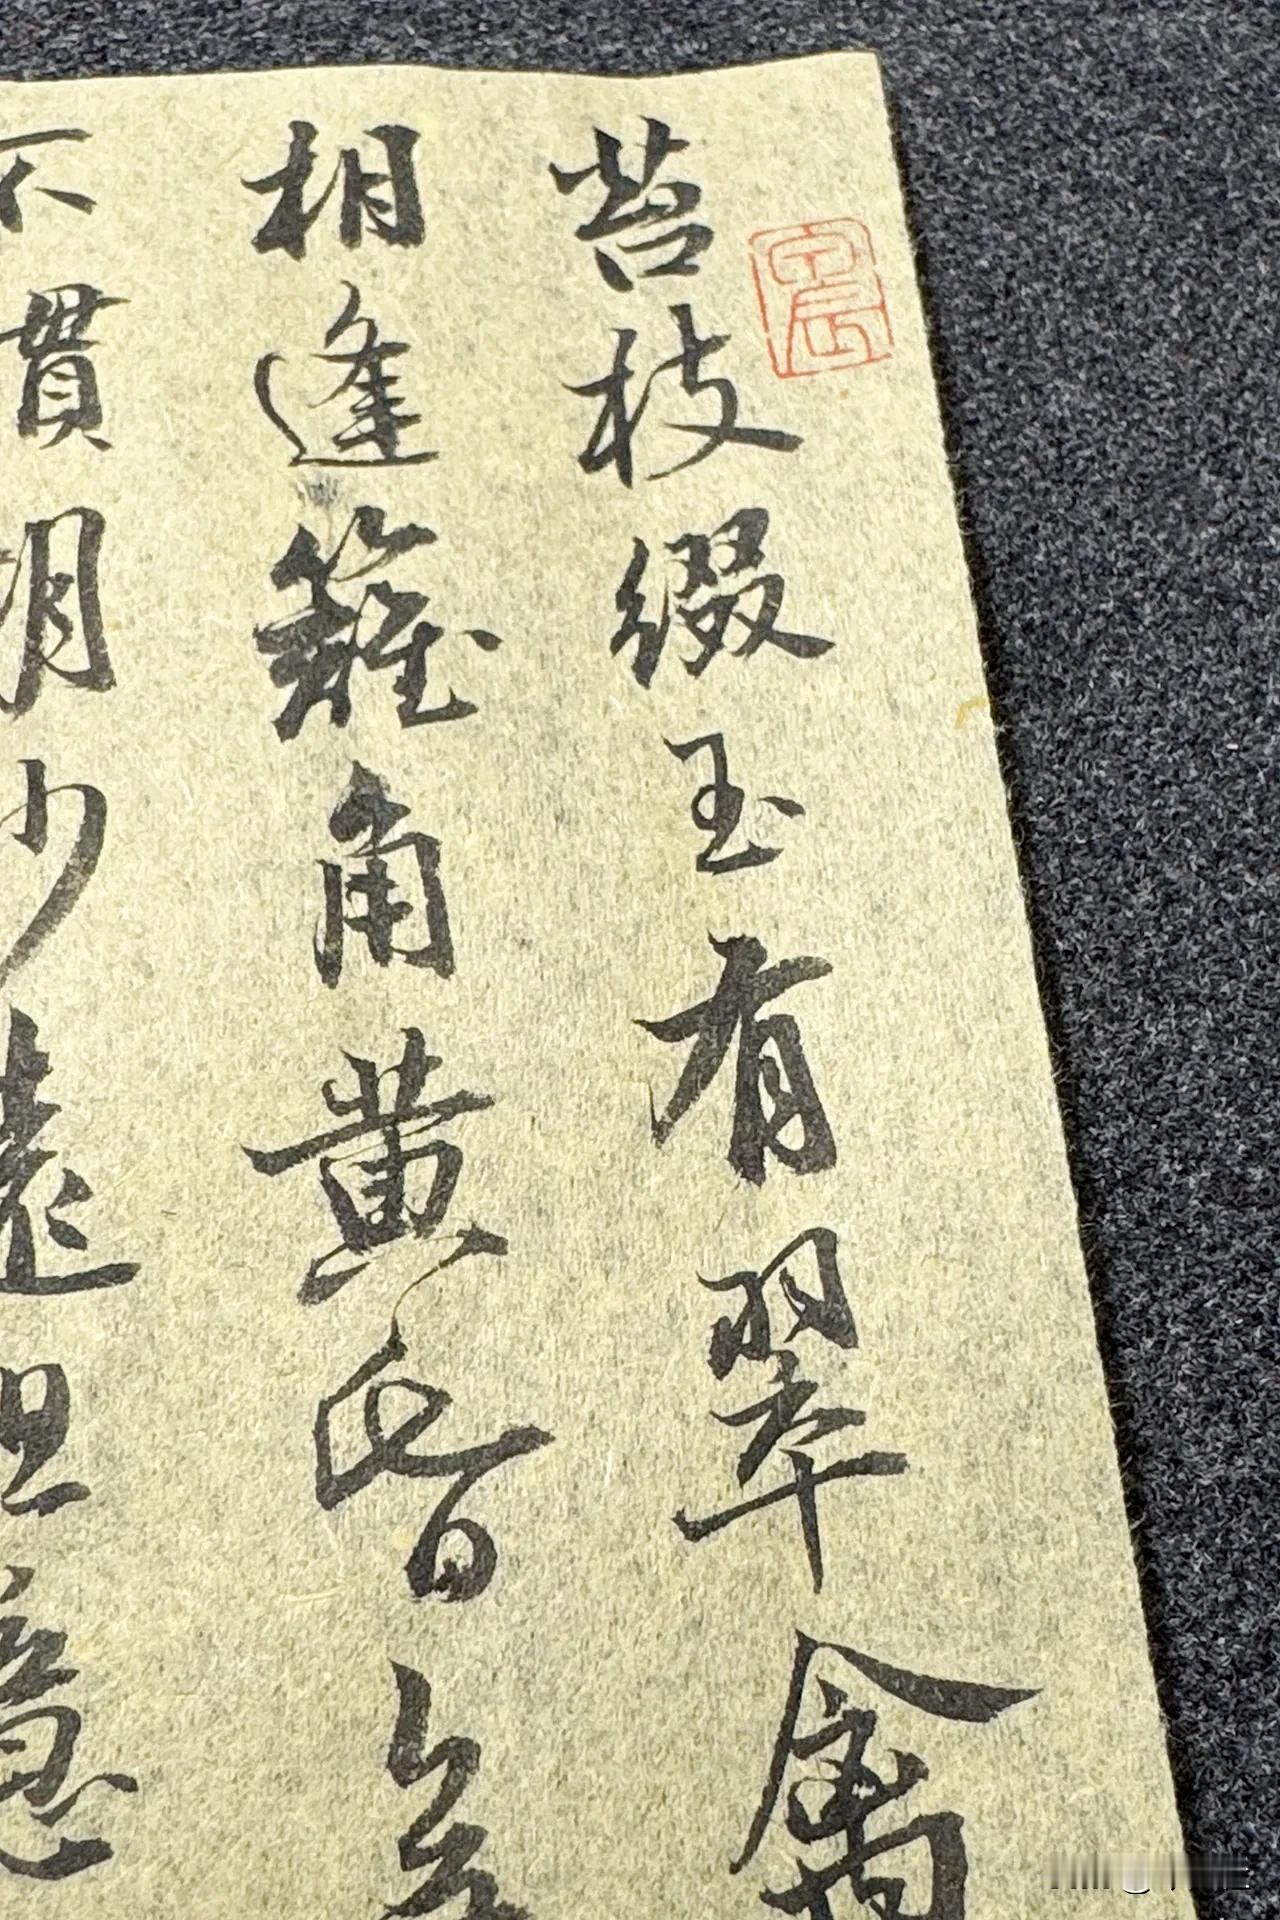 苔枝綴玉有翠禽
相逢籬角黄昏無
不慣胡沙遠但憶